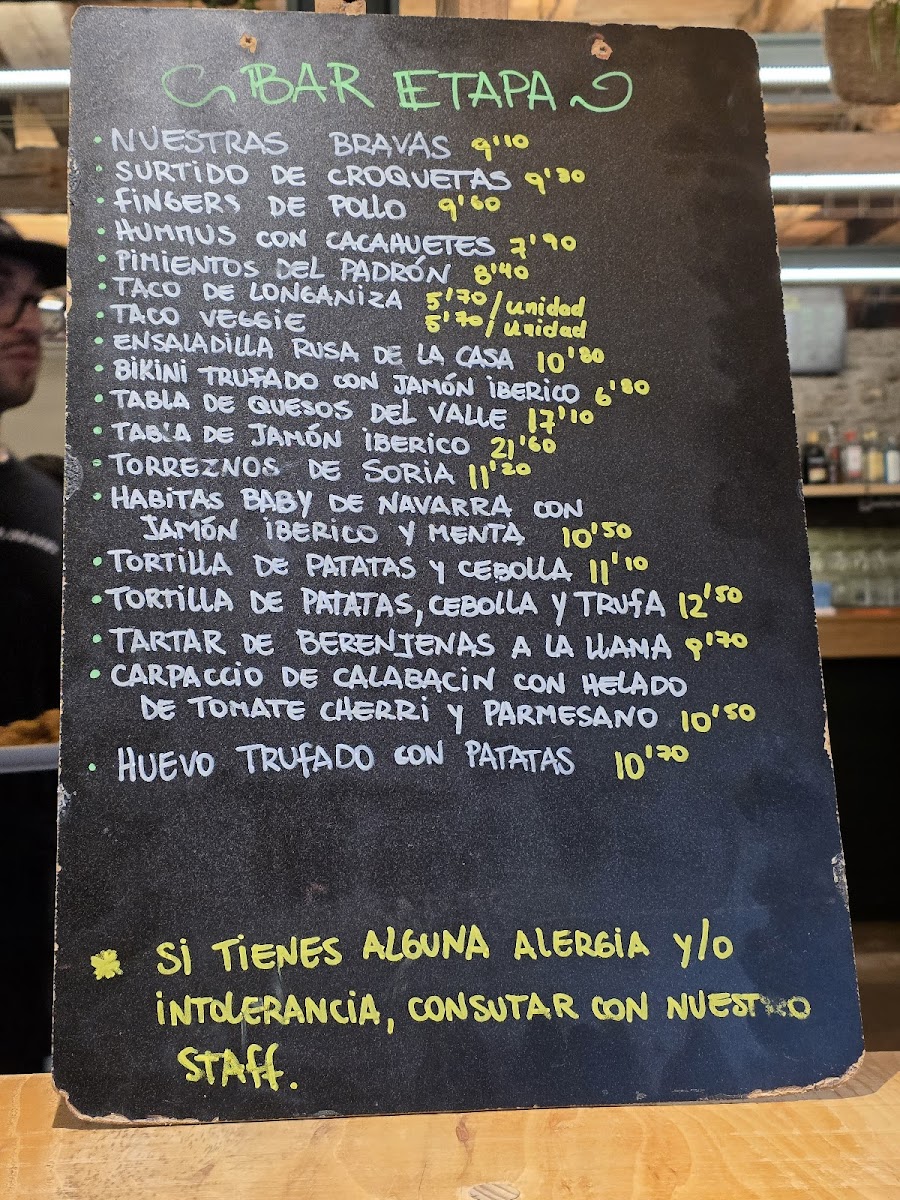 BAR ETAPA
• NUESTRAS BRAVAS 9'10
• SURTIDO DE CROQUETAS 9'30
• FINGERS DE POLLO 9'60
• HUMMUS CON CACAHUETES 7'90
• PIMIENTOS DEL PADRÓN 8'40
• TACO DE LONGANIZA 5'70/unidad
• TACO VEGGIE 5'70/unidad
• ENSALADILLA RUSA DE LA CASA 10'80
• BIKINI TRUFADO CON JAMÓN IBERICO 6'80
• TABLA DE QUESOS DEL VALLE 17'10
• TABLA DE JAMÓN IBERICO 21'60
• TORREZNOS DE SORIA 11'20
• HABITAS BABY DE NAVARRA CON
JAMÓN IBERICO Y MENTA 10'50
• TORTILLA DE PATATAS Y CEBOLLA 11'10
• TORTILLA DE PATATAS, CEBOLLA Y TRUFA 12'50
• TARTAR DE BERENJENAS A LA LLAMA 9'70
• CARPACCIO DE CALABACIN CON HELADO
DE TOMATE CHERRI Y PARMESANO 10'50
• HUEVO TRUFADO CON PATATAS 10'70
* SI TIENES ALGUNA ALERGIA Y/O
INTOLERANCIA, CONSUTAR CON NUESTRO
STAFF.